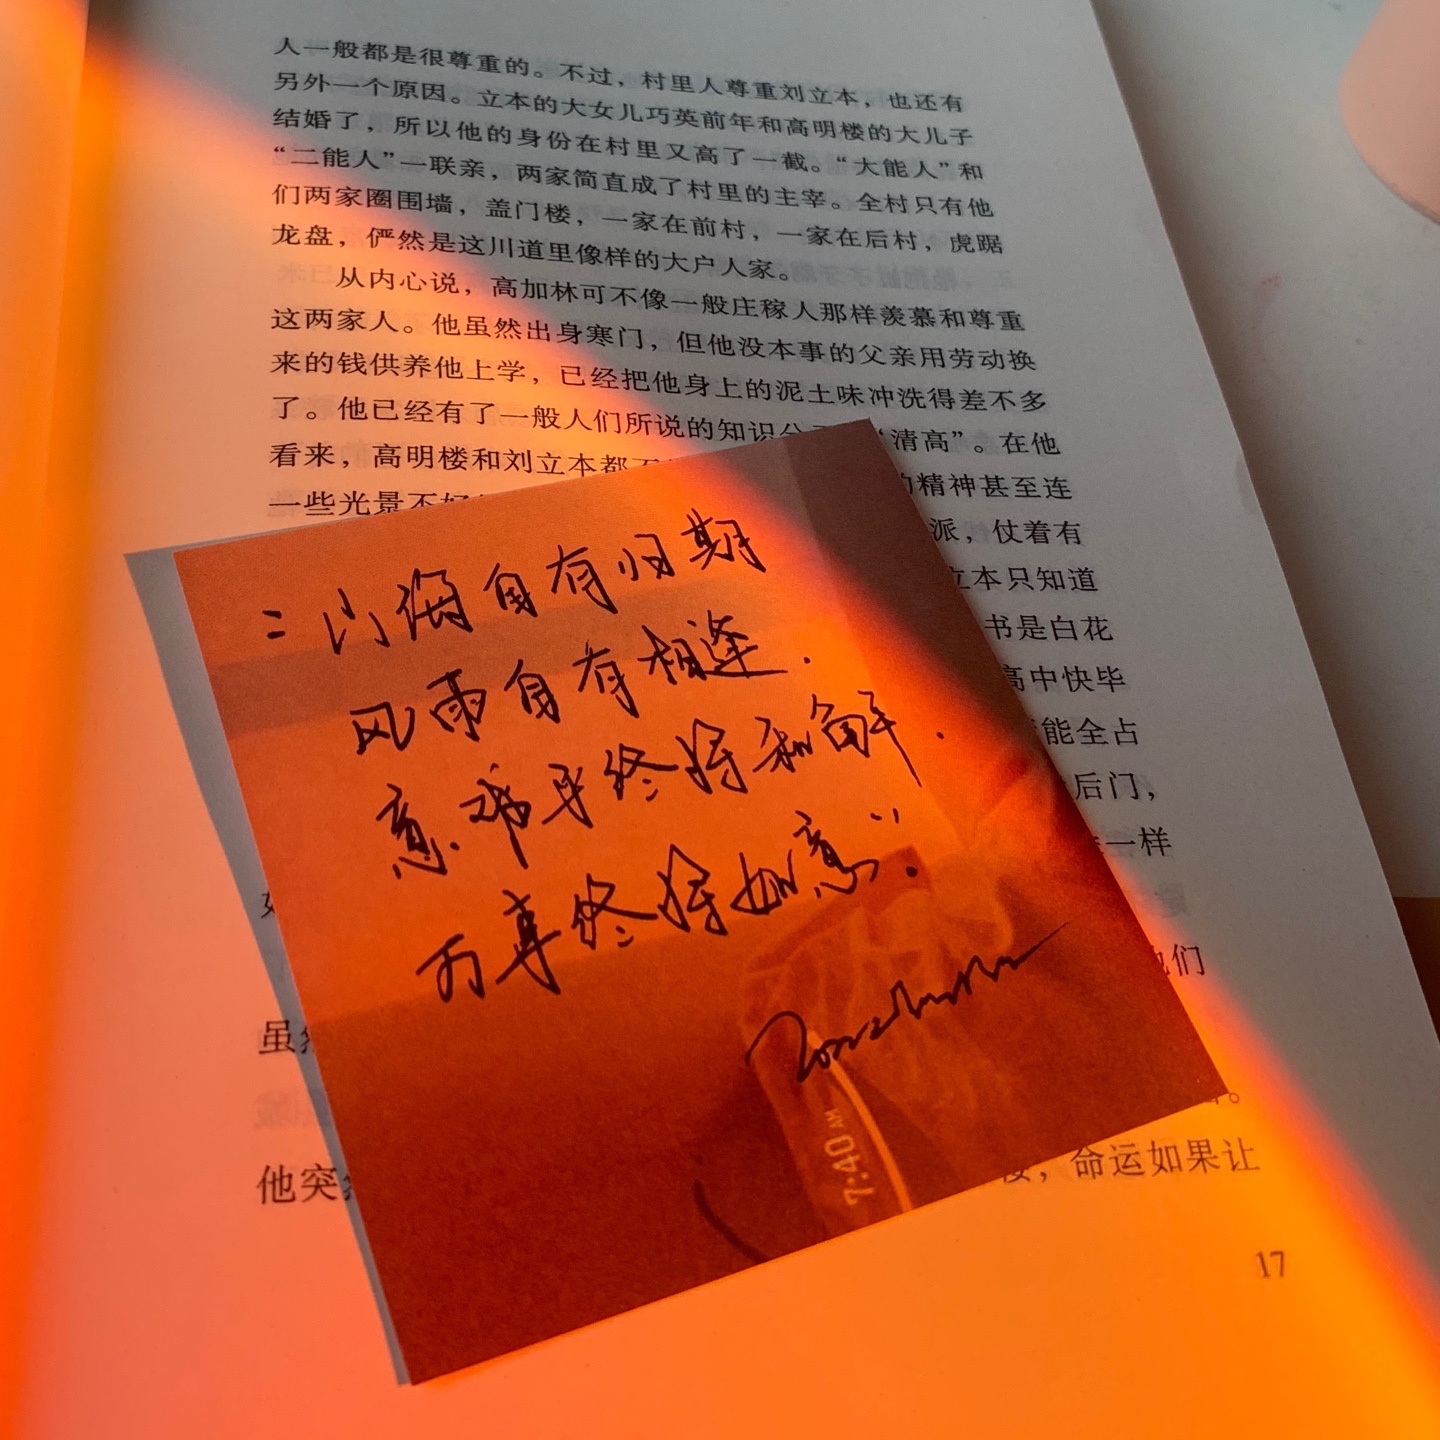 人一般都是很尊重的。不过，村里人尊重刘立本，也还有
另外一个原因。立本的大女儿巧英前年和高明楼的大儿子
结婚了，所以他的身份在村里又高了一截。“大能人”和
“二能人”一联亲，两家简直成了村里的主宰。全村只有他
们两家圈围墙，盖门楼，一家在前村，一家在后村，虎踞
龙盘，俨然是这川道里像样的大户人家。
从内心说，高加林可不像一般庄稼人那样羡慕和尊重
这两家人。他虽然出身寒门，但他没本事的父亲用劳动换
来的钱供养他上学，已经把他身上的泥土味冲洗得差不多
了。他已经有了一般人们所说的知识分 “清高”。在他
看来，高明楼和刘立本都不
的精神甚至连
一些光景不好
派，仗着有
立本只知道
书是白花
高中快毕
能全占
后门，
一样
他们
虽然
他突 ，命运如果让
17
：山海自有归期
风雨自有相逢．
意难平终将和解．
万事终将如意：
7:40 AM